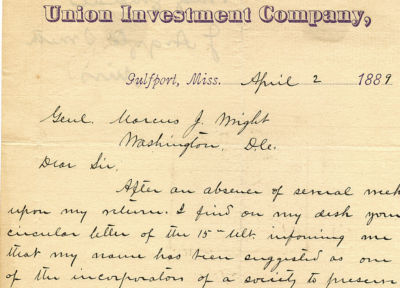 Union Investment Company,
Gulfport, Miss. April 2 1889
Genl. Marcus J. Wright
Washington, D.C.
Dear Sir,
After an absence of several week
upon my return. I find on my desk your
circular letter of the 15th ult. informing me
that my name has been suggested as one
of the incorporators of a society to preserve